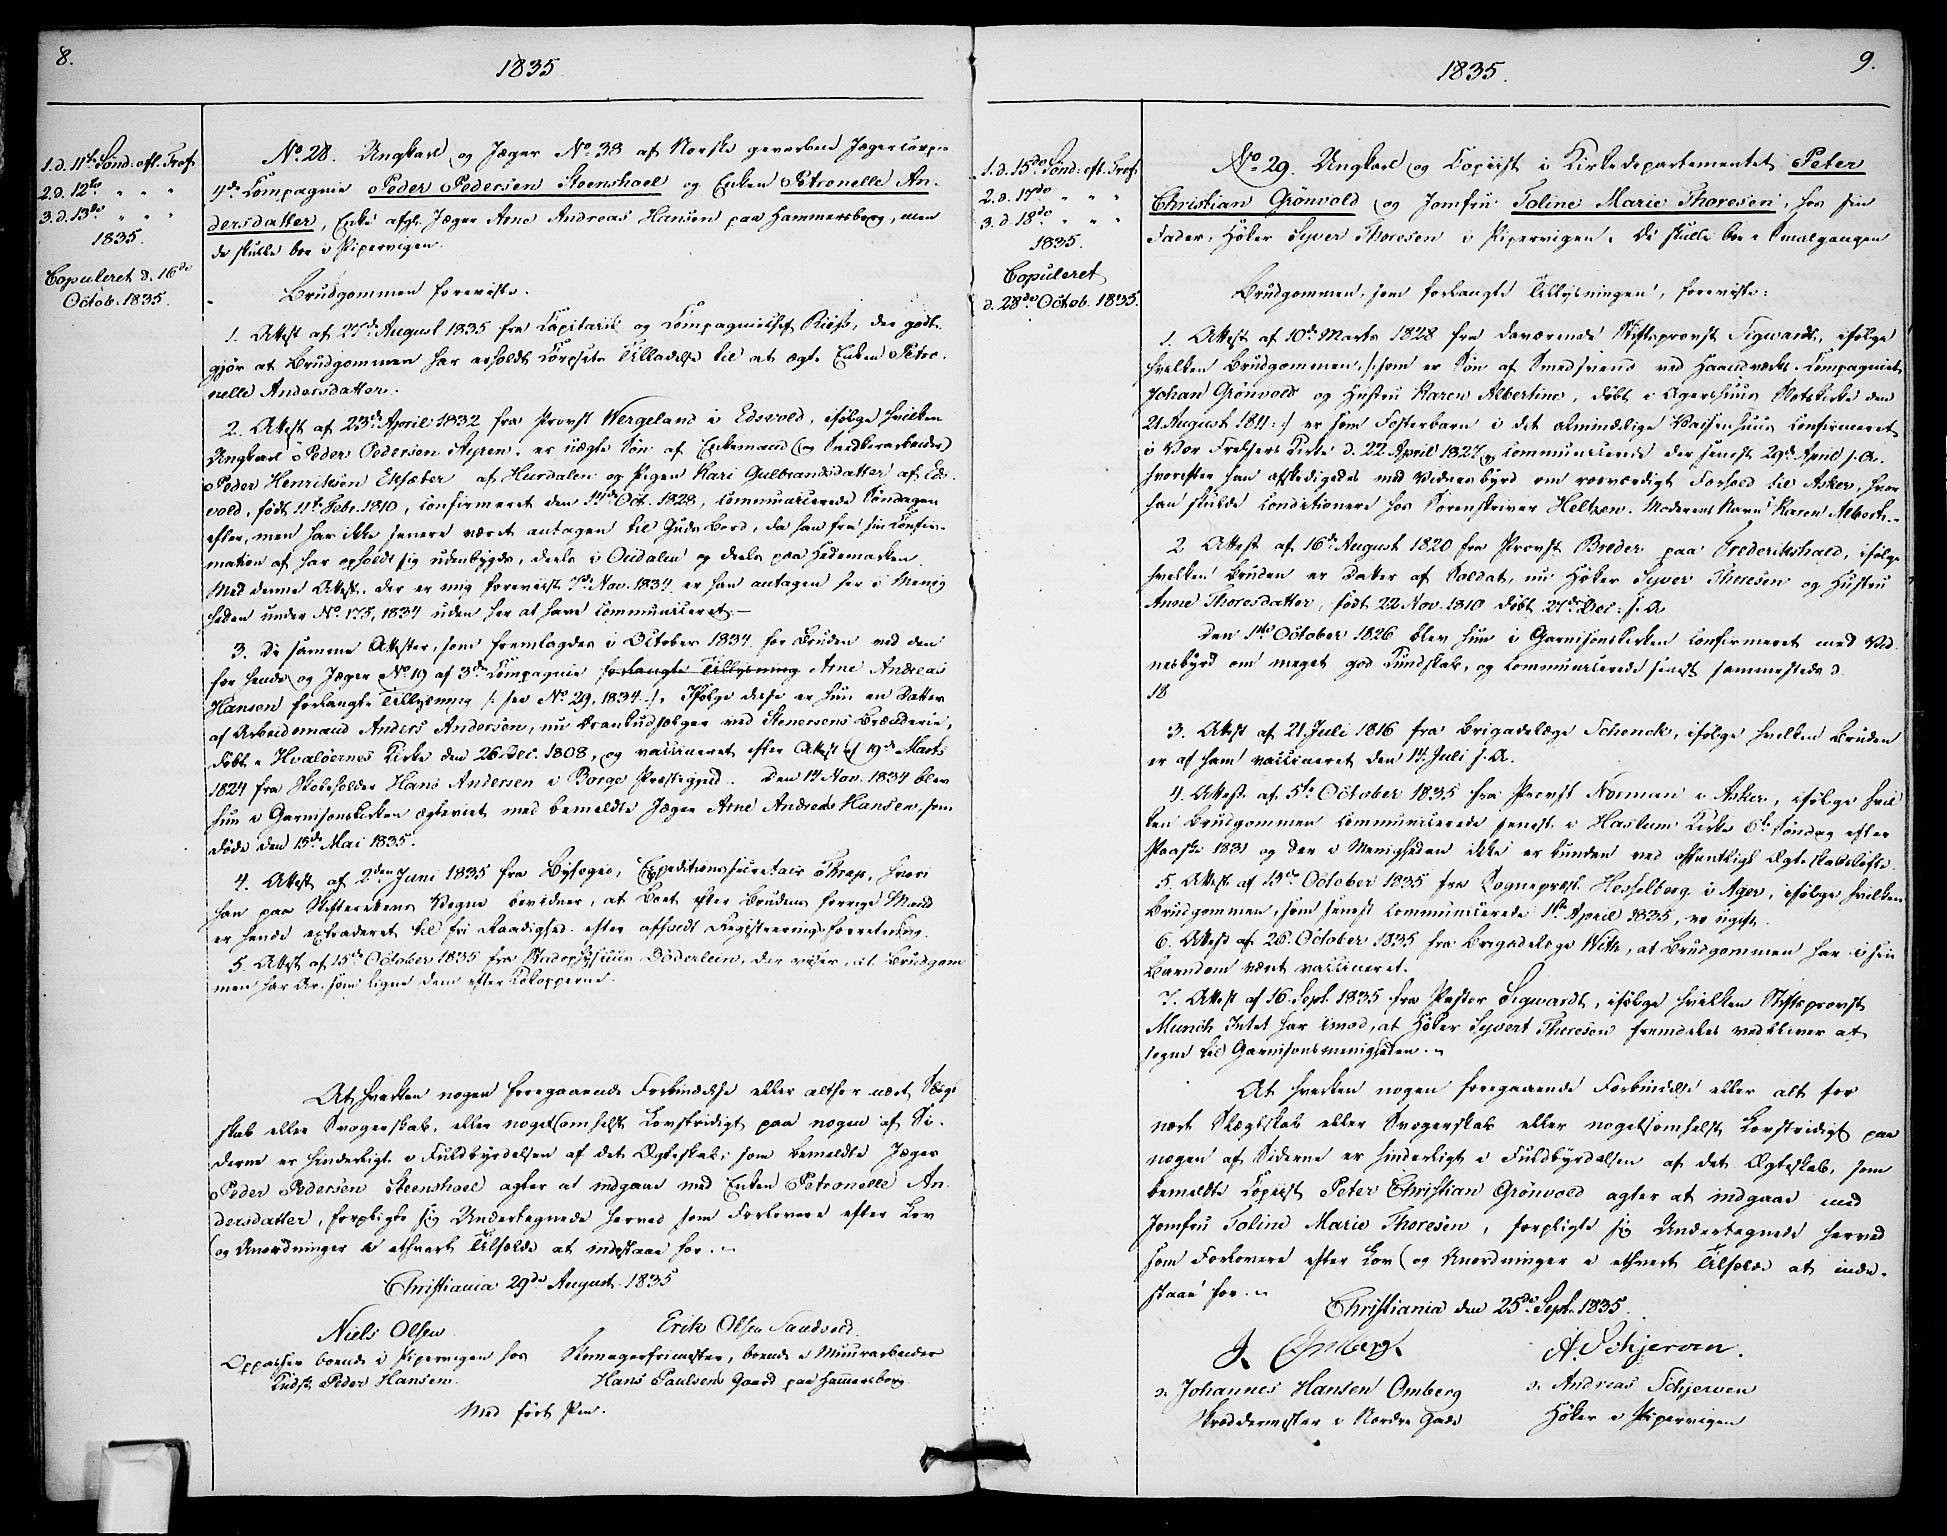 8.
1835
1.d. 11te Sønd: eft. Tref.
2.d. 12te " " "
3.d. 13de " " "
1835.
Copuleret d. 16de
Octob. 1835.
No. 28. Ungkarl og Jæger No. 38 af Norske gevorbne Jægercorps
4de Compagnie Peder Pedersen Steenshoel og Enken Petronelle An-
dersdatter, Enke afg. Jæger Arne Andreas Hansen paa Hammersborg, men
de skulle boe i Pipervigen.
Brudgommen foreviste.
1. Attest af 27de August 1835 fra Capitain og Compagniechef , der godt-
gjør at Brudgommen har erholdt Corpsets Tilladelse til at ægte Enken Petro-
nelle Andersdatter.
2. Attest af 23de April 1832 fra Provst Wergeland i Edsvold, ifølge hvilken
Ungkarl Peder Pedersen Styren, er uægte Søn af Enkemand og Snedkerarbeider
Peder Henriksen af Hurdalen og Pigen Kari Gulbrandsdatter af Eds-
vold, født 11te Febr. 1810, confirmeret den 14de Oct. 1828, communicerede Søndagen
efter, men har ikke senere været antagen til Guds Bord, da han fra sin Confir-
mation af har opholdt sig udenbygds, deels i Oudalen og deels paa Hedemarken.
Med denne Attest, der er mig foreviist 7de Nov. 1834 er han antagen her i Menig-
heden under No. 175, 1834 uden her at have communiceret. —
3. De samme Attester, som fremlagdes i October 1834 for Bruden ved den
for hende og Jæger No. 19 af 3die Compagnie forlangte Tillysning Arne Andreas
Hansen forlangte Tillysning /: see No. 29, 1834 :/. Ifølge disse er hun en Datter
af Arbeidsmand Anders Andersen, nu ved Stenersens Brænderie,
døbt i Hvaløernes Kirke den 26. Dec. 1808, og vaccineret efter Attest af 19de Marts
1824 fra Skoleholder Hans Andersen i Borge Præstegjeld. Den 14 Nov. 1834 blev
hun i Garnisonskirken ægteviet med bemeldte Jæger Arne Andreas Hansen, som
døde den 15de Mai 1835.
4. Attest af 2den Juni 1835 fra Byfoged, Expeditionssecretair , hvori
han paa Skifterettens Vegne bevidner, at Boet efter Brudens forrige Mand
er hende extraderet til fri Raadighed efter afholdt Registreringsforretning.
5. Attest af 15de October 1835 fra Stadsphysicus Döderlein, der viser, at Brudgom-
men har Ar, som ligne dem efter Kokopperne.
At hverken nogen foregaaende Forbindelse eller altfor nært Slægt-
skab eller Svogerskab, eller nogetsomhelst Lovstridigt paa nogen af Si-
derne er hinderligt i Fuldbyrdelsen af det Ægteskab, som bemeldte Jæger
Peder Pedersen Steenshoel agter at indgaae med Enken Petronelle An-
dersdatter, forpligte sig Undertegnede herved som Forlovere efter Lov
og Anordninger i ethvert Tilfælde at indestaae for. —
Christiania 29de August 1835
Niels Olsen
Opvarter boende i Pipervigen hos
Peder Hansen.
Erik Olsen Sandvold
Skomagersvend, boende i Muurarbeider
Hans Paulsens Gaard paa Hammersborg
Med ført Pen.
9.
1835.
1.d. 15de Sønd: eft. Tref.
2.d. 17de " " "
3.d. 18de " " "
1835.
Copuleret
d. 28de Octob. 1835.
No. 29. Ungkarl og Copiist i Kirkedepartementet Peter
Christian Grönvold og Jomfru Toline Marie Thoresen, hos sin
Fader, Høker Syver Thoresen i Pipervigen. De skulle boe i Smalgangen
Brudgommen, som forlangte Tillysningen, foreviste:
1. Attest af 10de Marts 1828 fra daværende Stiftsprovst Sigwardt, ifølge
hvilken Brudgommen, /: som er Søn af Smedsvend ved Haandværks-Compagniet
Johan Grönvold og Hustru Karen Albertine, døbt i Agershuus Slotskirke den
21 August 1811 :/ er som Fosterbarn i det almindelige Vaisenhuus confirmeret
i Vor Frelsers Kirke d. 22. April 1827 og communicerede der senest 29de April s. A.
hvorefter han afskedigedes med Vidnesbyrd om roesværdigt Forhold til Asker, hvor
han skulde conditionere hos Sorenskriver Heltzen. Moderens Navn Karen Albert.
2 Attest af 16de August 1820 fra Provst Breder paa Frederikshald, ifølge
hvilken Bruden er Datter af Soldat, nu Høker Syver Thoresen og Hustru
Anne Thoresdatter, født 22 Nov. 1810 døbt 27de Dec: s. A.
Den 1ste October 1826 blev hun i Garnisonskirken confirmeret med Vid-
nesbyrd om meget god Kundskab, og communicerede senest sammesteds d.
18
3. Attest af 21 Juli 1816 fra Brigadelæge Schenck, ifølge hvilken Bruden
er af ham vaccineret den 14. Juli s. A.
4. Attest af 5te October 1835 fra Provst Norman i Asker, ifølge hvil-
ken Brudgommen communicerede senest i Haslum Kirke 6te Søndag efter
Paaske 1831 og der i Menigheden ikke er bunden ved offentligt Ægteskabsløfte.
5. Attest af 13de October 1835 fra Sognepræst Hesselberg i Ager, ifølge hvilken
Brudgommen, som senest communicerede 1ste April 1835, er ugift.
6. Attest af 26. October 1835 fra Brigadelæge With, at Brudgommen har i sin
Barndom været vaccineret.
7. Attest af 16. Sept. 1835 fra Pastor Sigwardt, ifølge hvilken Stiftsprovst
Munch Intet har imod, at Høker Syvert Thoresen fremdeles vedbliver at
sogne til Garnisonsmenigheden. —
At hverken nogen foregaaende Forbindelse eller alt for
nært Slægtskab eller Svogerskab eller nogetsomhelst Lovstridigt paa
nogen af Siderne er hinderligt i Fuldbyrdelsen af det Ægteskab, som
bemeldte Copiist Peter Christian Grönvold agter at indgaae med
Jomfru Toline Marie Thoresen, forpligte sig Undertegnede herved
som Forlovere efter Lov og Anordninger i ethvert Tilfælde at inde-
staae for. —
Christiania den 25de Sept. 1835.
J. Omberg.
o: Johannes Hansen Omberg
Skræddermester i Nordre Gade
A. Schjerven.
o: Andreas Schjerven
Høker i Pipervigen